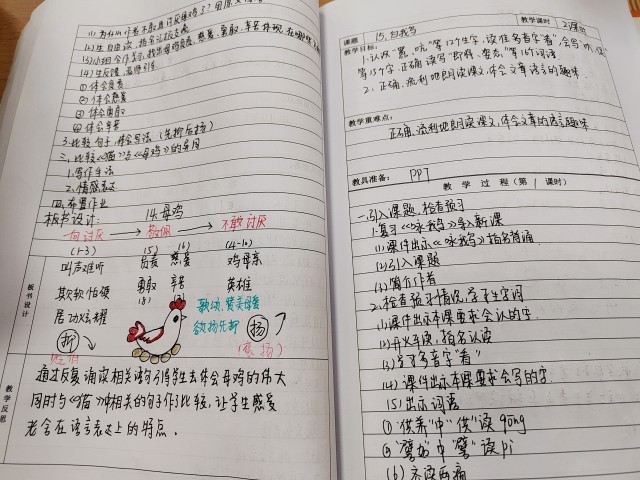 (1)为什么作者不敢再讨厌母鸡了?用原文
(4)生反馈,教师引导
①体会负责
②体会慈爱
③体会勇敢
④体会辛苦
3.比较句子,体会写法(先抑后扬)
三、比较《猫》与《母鸡》的异同
1.写作手法
2.情感表达
四.布置作业
板书设计: 14.母鸡
一向讨厌 → 敬佩 → 不敢讨厌
(1-3) (5) (6) (4-10)
叫声难听 负责 慈爱 鸡母亲
欺软怕硬 勇敢 辛苦 英雄
(8)
居功炫耀 歌颂、赞美母爱
欲扬先抑
抑 扬
板书设计
通过反复诵读相关语句引导学生去体会母鸡的伟大
同时与《猫》中相关的句子作比较,让学生感受
老舍在语言表达上的特点.
教学反思
课题 15.白鹅 教学课时 2课时
教学目标:
等15个字,正确读写"
2.正确、流利地朗读课文,体会文章语言的趣味.
教学重难点:
正确、流利地朗读课文,体会文章的语言趣味
教具准备: PPT
教 学 过 程(第 1 课时)
一.引入课题,检查预习
1.复习《咏鹅》导入新课
(1)课件出示《咏鹅》指名背诵.
(2)引入课题
(3)简介作者
2.检查预习情况,学习生字词
(1)课件出示本课要求会认的字.
(2)开火车读,指名认读
(3)学习多音字"看"
(4)课件出示本课要求会写的字.
(5)出示词语
①"供养"中"供"读gōng
②"譬如"中"譬"读pì
(6)齐读两遍